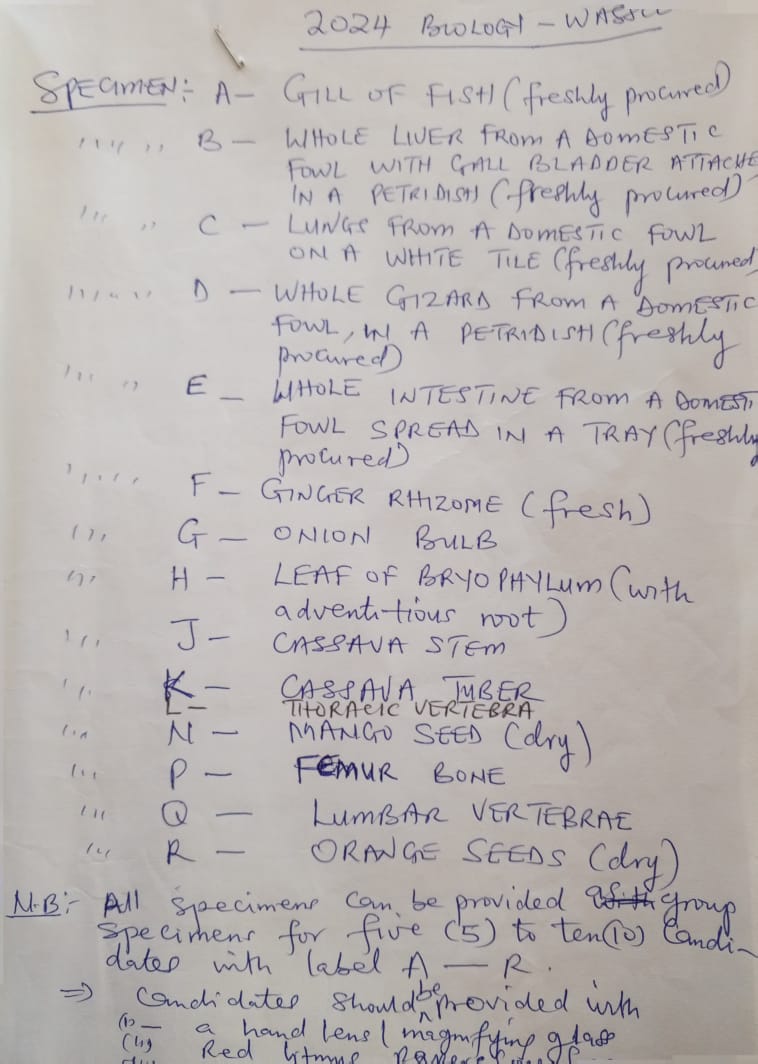 2024 BIOLOGY - WASSCE
SPECIMEN:- A - GILL OF FISH (freshly procured)
'' '' B - WHOLE LIVER FROM A DOMESTIC
FOWL WITH GALL BLADDER ATTACHE
IN A PETRIDISH (freshly procured)
'' '' C - LUNGS FROM A DOMESTIC FOWL
ON A WHITE TILE (freshly procured
'' '' D - WHOLE GIZARD FROM A DOMESTIC
FOWL, IN A PETRIDISH (freshly
procured)
'' '' E - WHOLE INTESTINE FROM A DOMESTI
FOWL SPREAD IN A TRAY (freshly
procured)
'' '' F - GINGER RHIZOME (fresh)
'' G - ONION BULB
'' H - LEAF OF BRYOPHYLUM (with
adventitious root)
'' J - CASSAVA STEM
'' K - CASSAVA TUBER
L - THORACIC VERTEBRA
'' N - MANGO SEED (dry)
'' P - FEMUR BONE
'' Q - LUMBAR VERTEBRAE
'' R - ORANGE SEEDS (dry)
N.B:- All specimens can be provided with group
specimens for five (5) to ten (10) Candi-
dates with label A — R.
⇒ Candidates should be provided with
(i) — a hand lens / magnifying glass
(ii) Red litmus